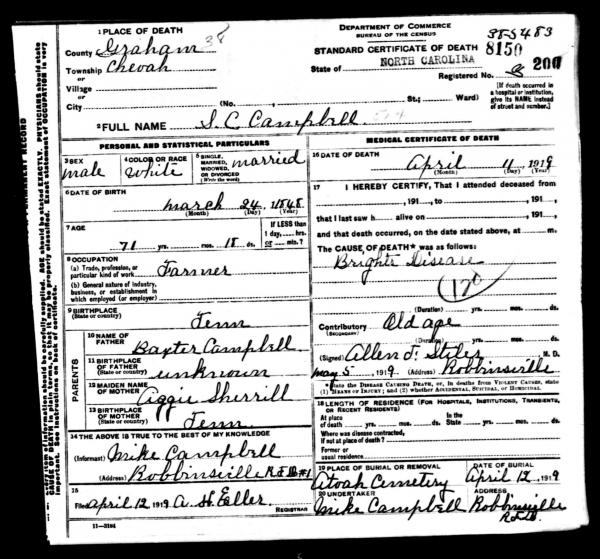 1 PLACE OF DEATH
County Graham 38
Township Cheoah
or
Village
or
City (No. , St.; Ward)
DEPARTMENT OF COMMERCE
BUREAU OF THE CENSUS
STANDARD CERTIFICATE OF DEATH
385483
8150
State of NORTH CAROLINA
Registered No. 8 200
[If death occurred in
a hospital or institution,
give its NAME instead
of street and number.]
2 FULL NAME S. C. Campbell
PERSONAL AND STATISTICAL PARTICULARS
3 SEX
male
4 COLOR OR RACE
White
5 SINGLE,
MARRIED,
WIDOWED,
OR DIVORCED
(Write the word)
married
6 DATE OF BIRTH
march 24, 1848
(Month) (Day) (Year)
7 AGE
71 yrs. mos. 18 ds.
If LESS than
1 day, hrs.
or min.?
8 OCCUPATION
(a) Trade, profession, or
particular kind of work Farmer
(b) General nature of industry,
business, or establishment in
which employed (or employer)
9 BIRTHPLACE
(State or country) Tenn
PARENTS
10 NAME OF
FATHER Baxter Campbell
11 BIRTHPLACE
OF FATHER
(State or country) unknown
12 MAIDEN NAME
OF MOTHER Aggie Sherrill
13 BIRTHPLACE
OF MOTHER
(State or country) Tenn
14 THE ABOVE IS TRUE TO THE BEST OF MY KNOWLEDGE
(Informant) Mike Campbell
(Address) Robbinsville R.F.D. #1
15
Filed April 12 1919 A. H. Eller
REGISTRAR
11-3184
MEDICAL CERTIFICATE OF DEATH
16 DATE OF DEATH
April 11 1919
(Month) (Day) (Year)
17 I HEREBY CERTIFY, That I attended deceased from
, 191 , to , 191 ,
that I last saw h alive on , 191 ,
and that death occurred, on the date stated above, at m.
The CAUSE OF DEATH* was as follows:
Brights Disease
120
(Duration) yrs. mos. ds.
Contributory Old age
(SECONDARY)
(Duration) yrs. mos. ds.
(Signed) Allen J. Stiles M. D.
May 5, 1919 (Address) Robbinsville
*State the DISEASE CAUSING DEATH, or, in deaths from VIOLENT CAUSES, state
(1) MEANS OF INJURY; and (2) whether ACCIDENTAL, SUICIDAL, or HOMICIDAL.
18 LENGTH OF RESIDENCE (FOR HOSPITALS, INSTITUTIONS, TRANSIENTS,
OR RECENT RESIDENTS)
At place
of death yrs. mos. ds.
In the
State yrs. mos. ds.
Where was disease contracted,
if not at place of death?
Former or
usual residence
19 PLACE OF BURIAL OR REMOVAL
Atoah Cemetery
DATE OF BURIAL
April 12, 1919
20 UNDERTAKER
Mike Campbell
ADDRESS
Robbinsville
R.F.D.